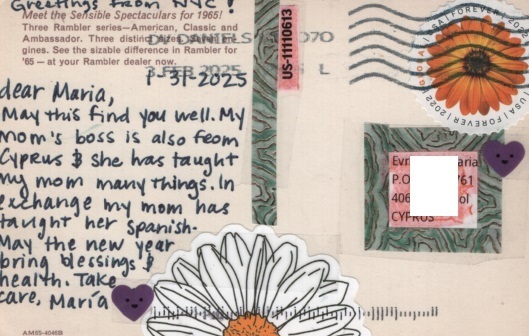 Greetings from NYC!
Meet the Sensible Spectaculars for 1965!
Three Rambler series—American, Classic and
Ambassador. Three distinct
gines. See the sizable difference in Rambler for
'65 — at your Rambler dealer now.
1-31-2025
dear Maria,
May this find you well. My
mom's boss is also feom
Cyprus & she has taught
my mom many things. In
exchange my mom has
taught her Spanish.
May the new year
bring blessings &
health. Take
care, María
AM65-4046B
US-11110613
3 FEB 2025 L
USA | FOREVER | 2022
P.O. 761
CYPRUS